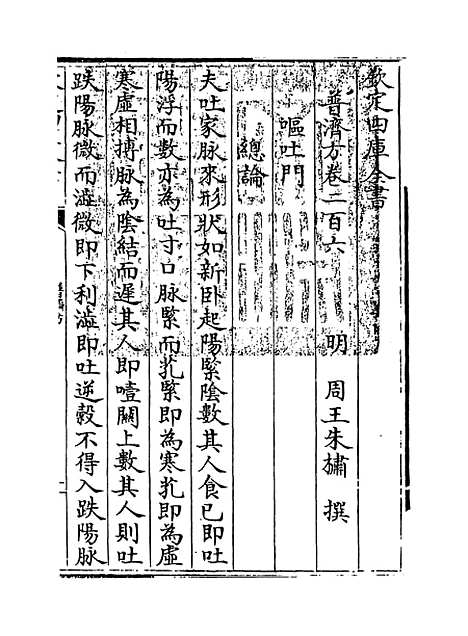 欽定四庫全書
普濟方卷二百六
明 周王朱橚 撰
嘔吐門
總論
夫吐家脉來形狀如新卧起陽緊陰數其人食已即吐
陽浮而數亦為吐寸口脉緊而芤緊即為寒芤即為虛
寒虛相搏脉為陰結而遲其人即噎關上數其人則吐
趺陽脉微而澁微即下利澁即吐逆穀不得入趺陽脉